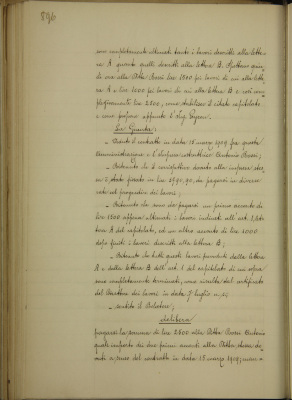 896
sono completamente ultimati tanto i lavori descritti alla lettera
A quanto quelli descritti alla lettera B. Spettano quindi
ora alla Ditta Bossi lire 1500 pei lavori di cui alla lettera
A e lire 1000 pei lavori di cui alla lettera B e così com-
plessivamente lire 2500, come stabilisce il citato capitolato
e come propone appunto l'Ing.
La Giunta:
- Veduto il contratto in data 15 marzo 1909 fra questa
Amministrazione e l'impresa costruttrice Antonio Bossi;
- Ritenuto che il corrispettivo dovuto alla impresa stes-
sa è stato fissato in lire da pagarsi in diverse
rate nel progredire dei lavori;
- Ritenuto che sono da pagarsi un primo acconto di
lire 1500 appena ultimati i lavori indicati all'art. 1, let-
tera A del capitolato, ed un altro acconto di lire 1000
dopo finiti i lavori descritti alla lettera B;
- Ritenuto che tutti questi lavori preveduti dalla lettera
A e dalla lettera B dell'art. 1 del capitolato di cui sopra
sono completamente terminati, come risulta dal certificato
del Direttore dei lavori in data 7 luglio
- sentito il Relatore;
delibera
pagarsi la somma di lire 2500 alla Ditta Bossi Antonio
quale importo dei due primi acconti alla Ditta stessa do-
vuti a senso del contratto in data 15 marzo 1909;